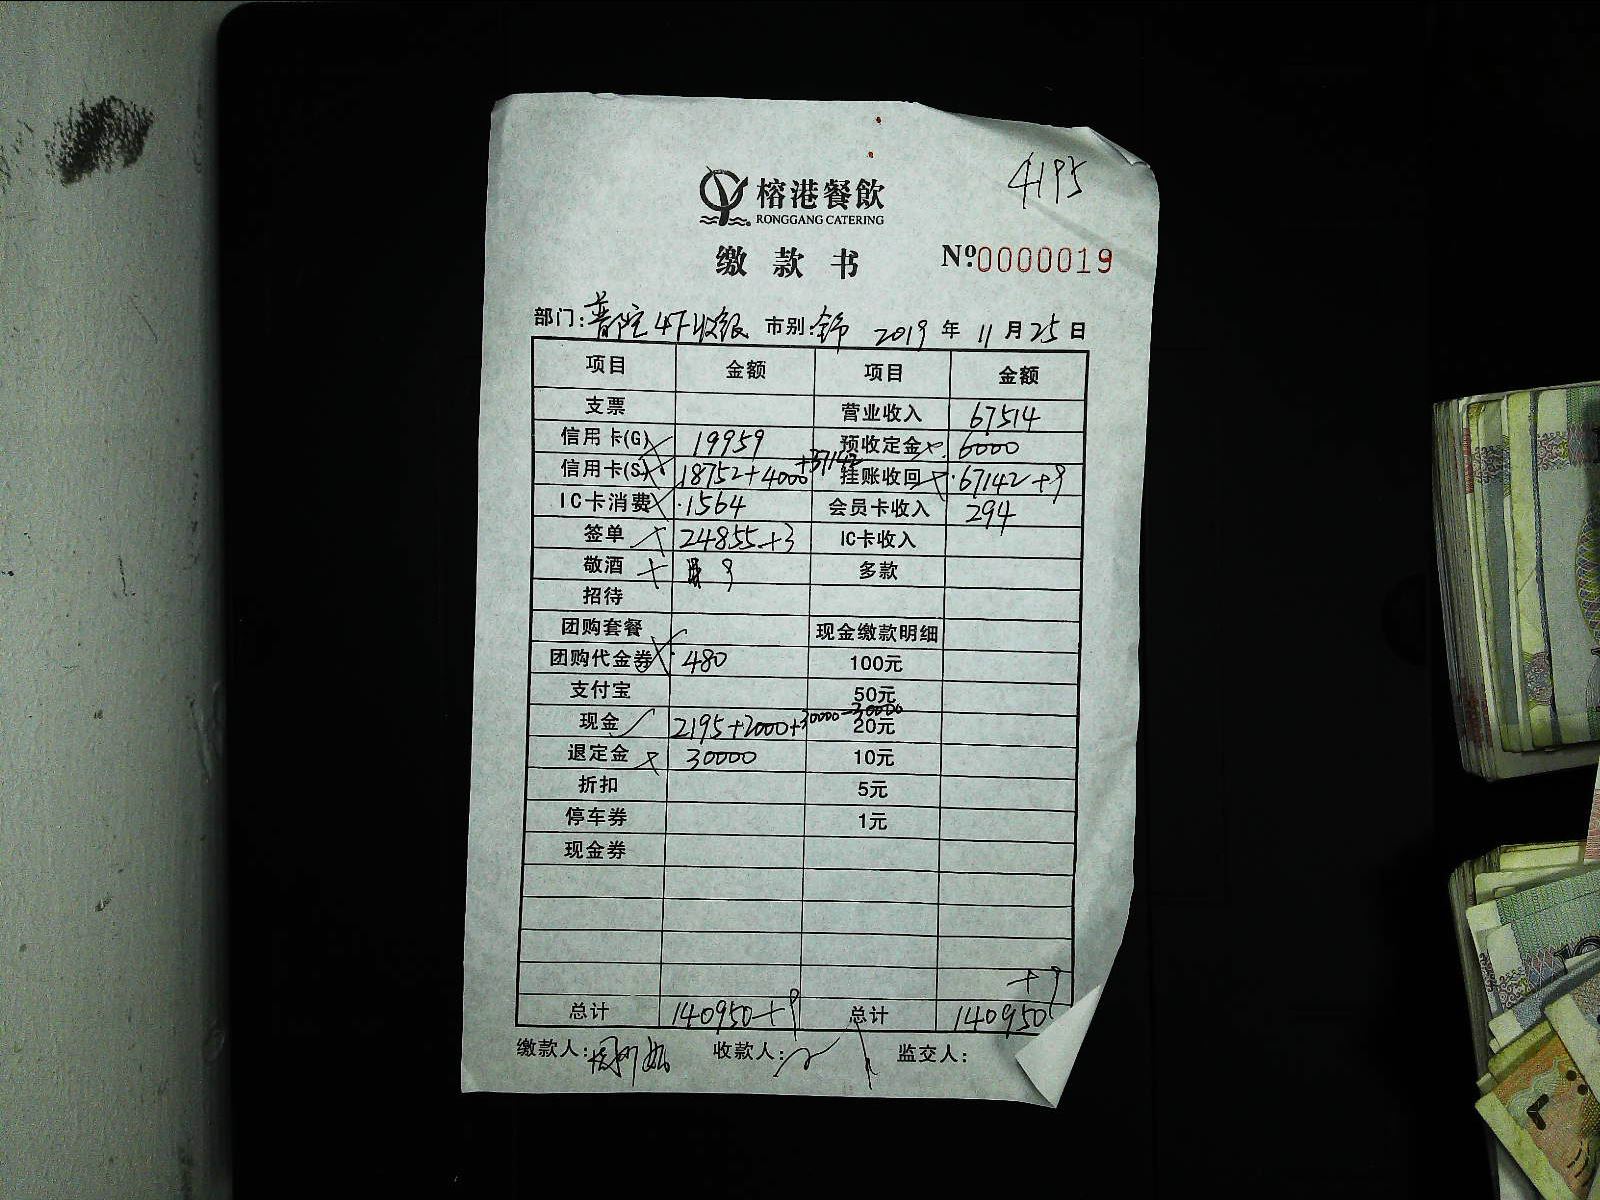 4195
榕港餐飲
RONGGANG CATERING
缴款书 №0000019
部门: 普陀4F收银 市别: 全市 2019年11月25日
项目 金额 项目 金额
支票 营业收入 67514
信用卡(G) 19959 预收定金 6000
信用卡(S) 18752+4000+37142 挂账收回 67142+9
IC卡消费 1564 会员卡收入 294
签单 24855+3 IC卡收入
敬酒 9 多款
招待
团购套餐 现金缴款明细
团购代金券 480 100元
支付宝 50元
现金 2195+2000+30000-30000 20元
退定金 30000 10元
折扣 5元
停车券 1元
现金券
+9
总计 140950+9 总计 140950
缴款人: 收款人: 监交人: